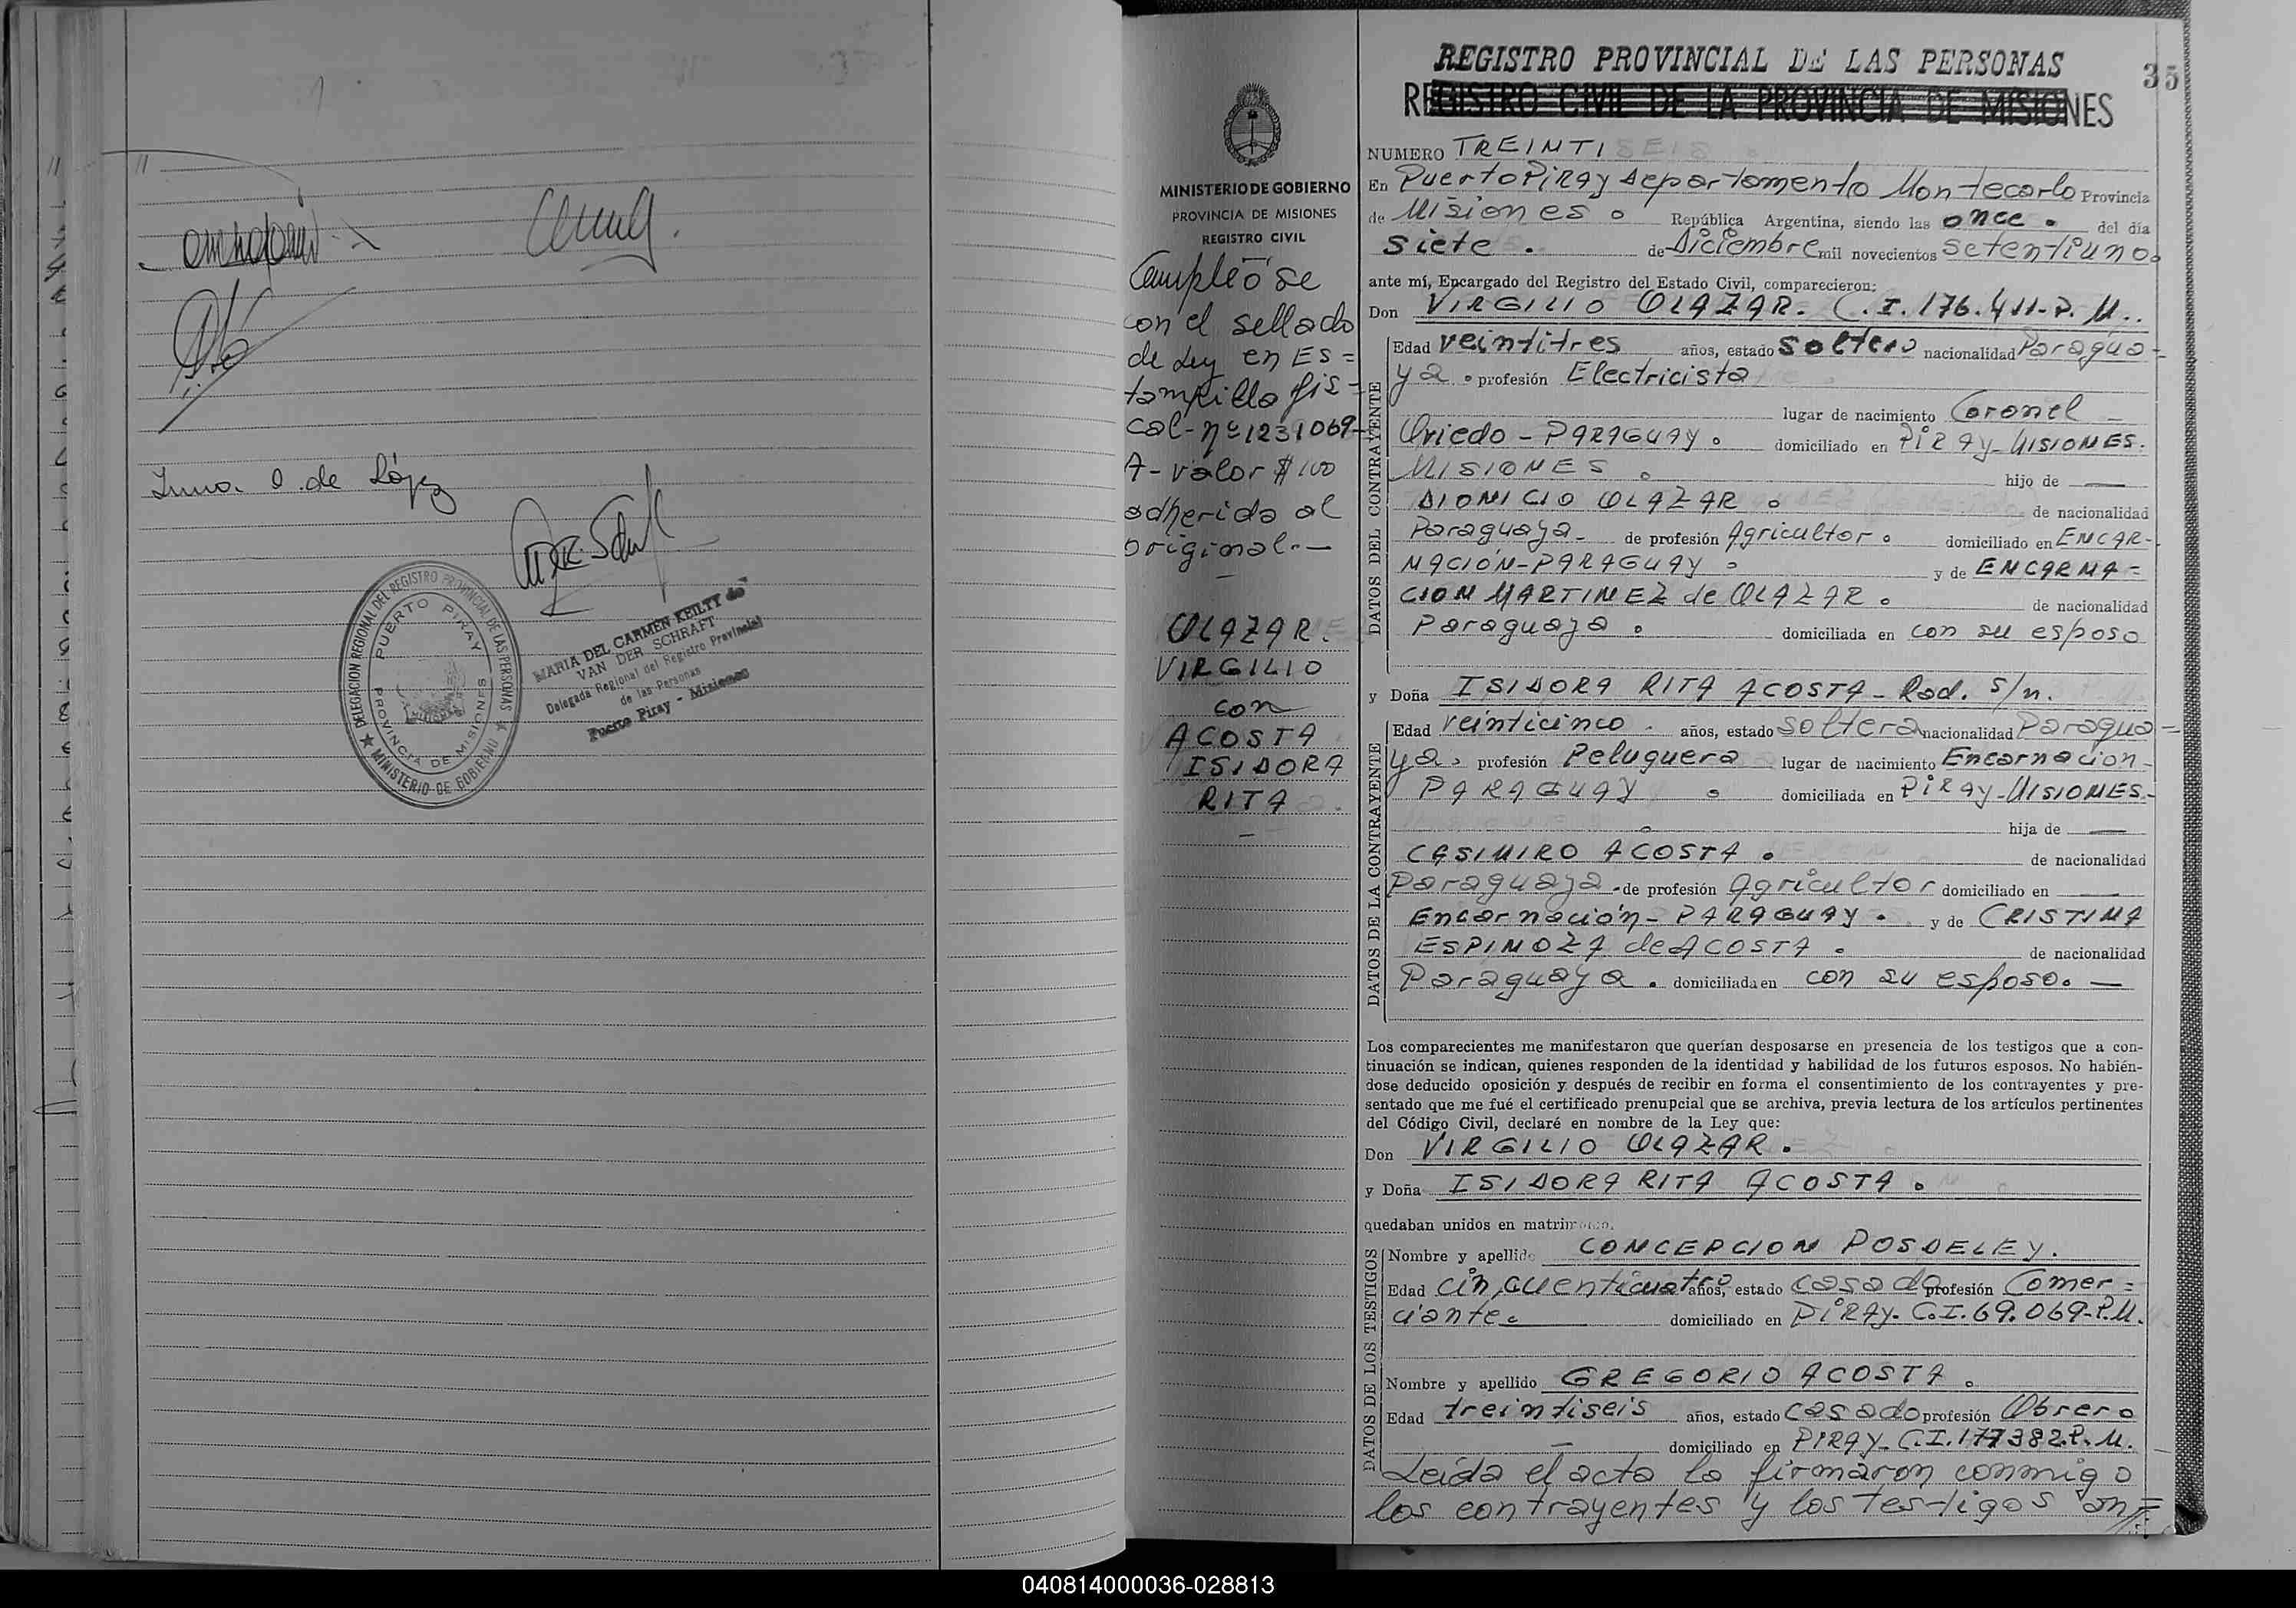 Irma O. de López
MARIA DEL CARMEN KEILTY de
VAN DER SCHRAFT
Delegada Regional del Registro Provincial
de las Personas
Puerto Piray - Misiones
DELEGACION REGIONAL DEL REGISTRO PROVINCIAL DE LAS PERSONAS
★ MINISTERIO DE GOBIERNO ★
PUERTO PIRAY
PROVINCIA DE MISIONES
MINISTERIO DE GOBIERNO
PROVINCIA DE MISIONES
REGISTRO CIVIL
Cumplióse
con el sellado
de Ley en Es=
tampilla fis=
cal-nº1231069-
A-valor $100
adherida al
original.-
OLAZAR.
VIRGILIO
con
ACOSTA
ISIDORA
RITA
REGISTRO PROVINCIAL DE LAS PERSONAS
35
REGISTRO CIVIL DE LA PROVINCIA DE MISIONES
NUMERO TREINTI
En Puerto Piray departamento Montecarlo Provincia
de Misiones. República Argentina, siendo las once. del día
siete. de Diciembre mil novecientos setentiuno.
ante mí, Encargado del Registro del Estado Civil, comparecieron:
Don VIRGILIO OLAZAR. C.I. 176.411-P.M..
Edad veintitres años, estado soltero nacionalidad Paragua=
ya. profesión Electricista
lugar de nacimiento Coronel
Oviedo-PARAGUAY. domiciliado en PIRAY-MISIONES.
MISIONES. hijo de —
DIONICIO OLAZAR. de nacionalidad
Paraguaya- de profesión Agricultor. domiciliado en ENCAR-
NACIÓN-PARAGUAY. y de ENCARNA=
CION MARTINEZ de OLAZAR. de nacionalidad
Paraguaya. domiciliada en con su esposo
DATOS DEL CONTRAYENTE
y Doña ISIDORA RITA ACOSTA-Rad. s/n.
Edad veinticinco. años, estado soltera nacionalidad Paragua=
ya. profesión Peluquera lugar de nacimiento Encarnacion-
PARAGUAY. domiciliada en PIRAY-MISIONES-
hija de —
CASIMIRO ACOSTA. de nacionalidad
Paraguaya. de profesión Agricultor domiciliado en —
Encarnación-PARAGUAY. y de CRISTINA
ESPINOZA de ACOSTA. de nacionalidad
Paraguaya. domiciliada en con su esposo. —
DATOS DE LA CONTRAYENTE
Los comparecientes me manifestaron que querían desposarse en presencia de los testigos que a con-
tinuación se indican, quienes responden de la identidad y habilidad de los futuros esposos. No habién-
dose deducido oposición y después de recibir en forma el consentimiento de los contrayentes y pre-
sentado que me fué el certificado prenupcial que se archiva, previa lectura de los artículos pertinentes
del Código Civil, declaré en nombre de la Ley que:
Don VIRGILIO OLAZAR.
y Doña ISIDORA RITA ACOSTA.
quedaban unidos en matrimonio.
Nombre y apellido CONCEPCION POSDELEY.
Edad cincuenticuatro años, estado casado profesión Comer=
ciante. domiciliado en PIRAY. C.I. 69.069-P.M.
Nombre y apellido GREGORIO ACOSTA.
Edad treintiseis años, estado casado profesión Obrero
domiciliado en PIRAY-C.I. 177382.P.M.
DATOS DE LOS TESTIGOS
Leída el acta la firmaron conmigo
los contrayentes y los testigos an=
040814000036-028813